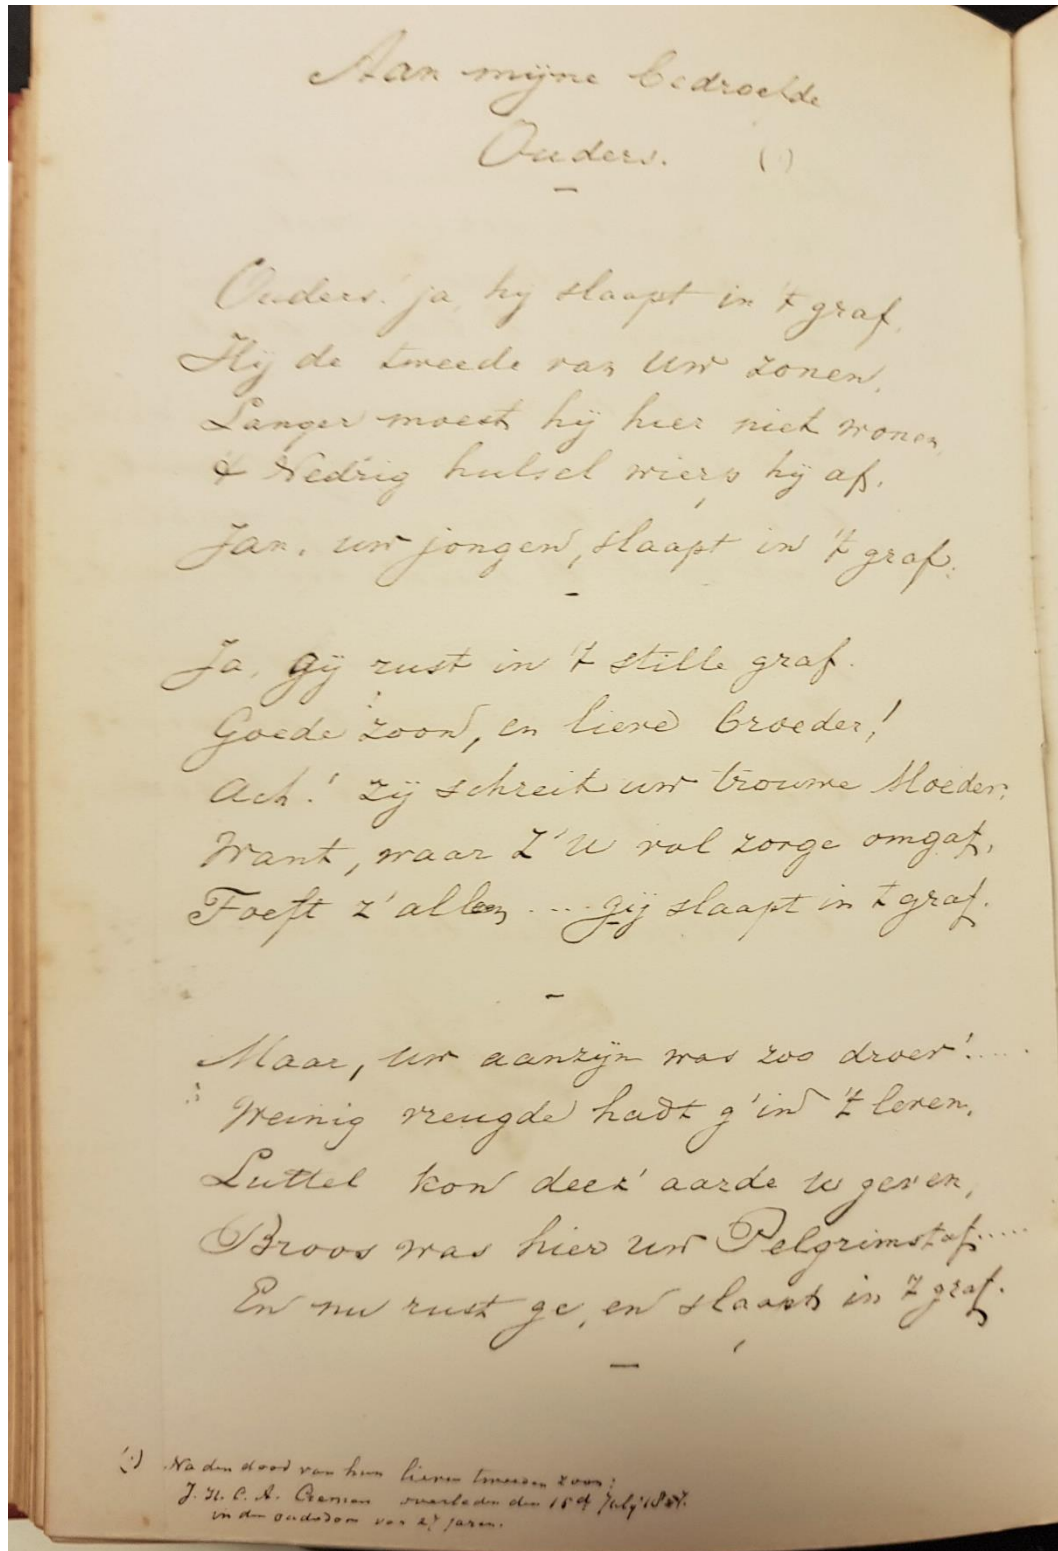 Aan mijne bedroefde
Ouders. (1)
Ouders! ja, hij slaapt in 't graf,
Hij de tweede van Uw zonen,
Langer moest hij hier niet wonen,
't Nedrig hulsel wierp hij af.
Jan, uw jongen, slaapt in 't graf.
Ja, gij rust in 't stille graf.
Goede zoon, en lieve broeder!
Ach! zij schreit uw trouwe Moeder;
Want, waar z' U vol zorge omgaf,
Toeft z' alleen .... gij slaapt in 't graf.
Maar, uw aanzijn was zoo droev'!....
Weinig vreugde hadt g' in 't leven,
Luttel kon deez' aarde u geven,
Broos was hier uw Pelgrimstaf.....
En nu rust ge, en slaapt in 't graf.
(1) Na den dood van hun lieven tweeden zoon;
J. H. C. A. overleden den 15d July
in den ouderdom van 27 jaren.